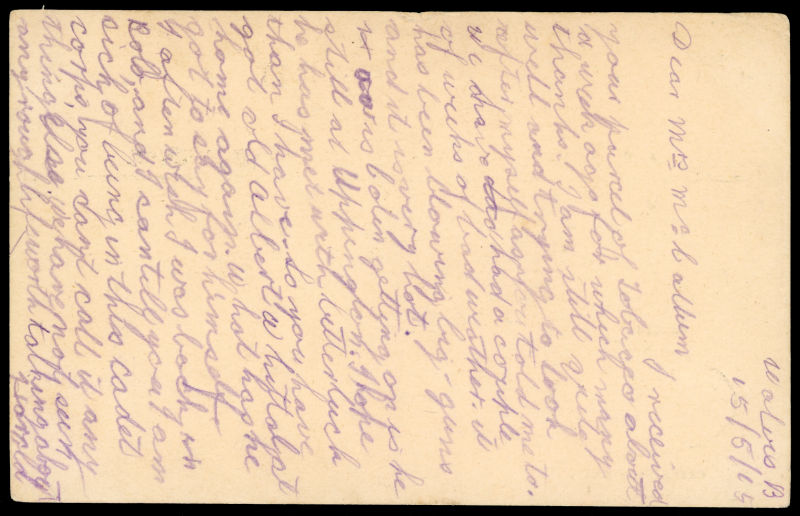 Walvis B
15/5/15
Dear Mrs McCallum
I received
your parcel of tobacco about
a week ago for which many
thanks. I am still well
well and trying to look
after myself as you told me to.
we have had a couple
of weeks of bad wether. it
has been blowing big-guns
and it is very hot.
is old getting on is he
still at Uppington. I hope
he has met with better luck
than I have. So you have
got old albert a hiftalgst
home again. What has he
got to say for himself
I often wish I was back in
Rob and I can tell you I am
sick of being in this cadet
corps, you cant call it any
thing else. We have not seen
any rough life worth talking about